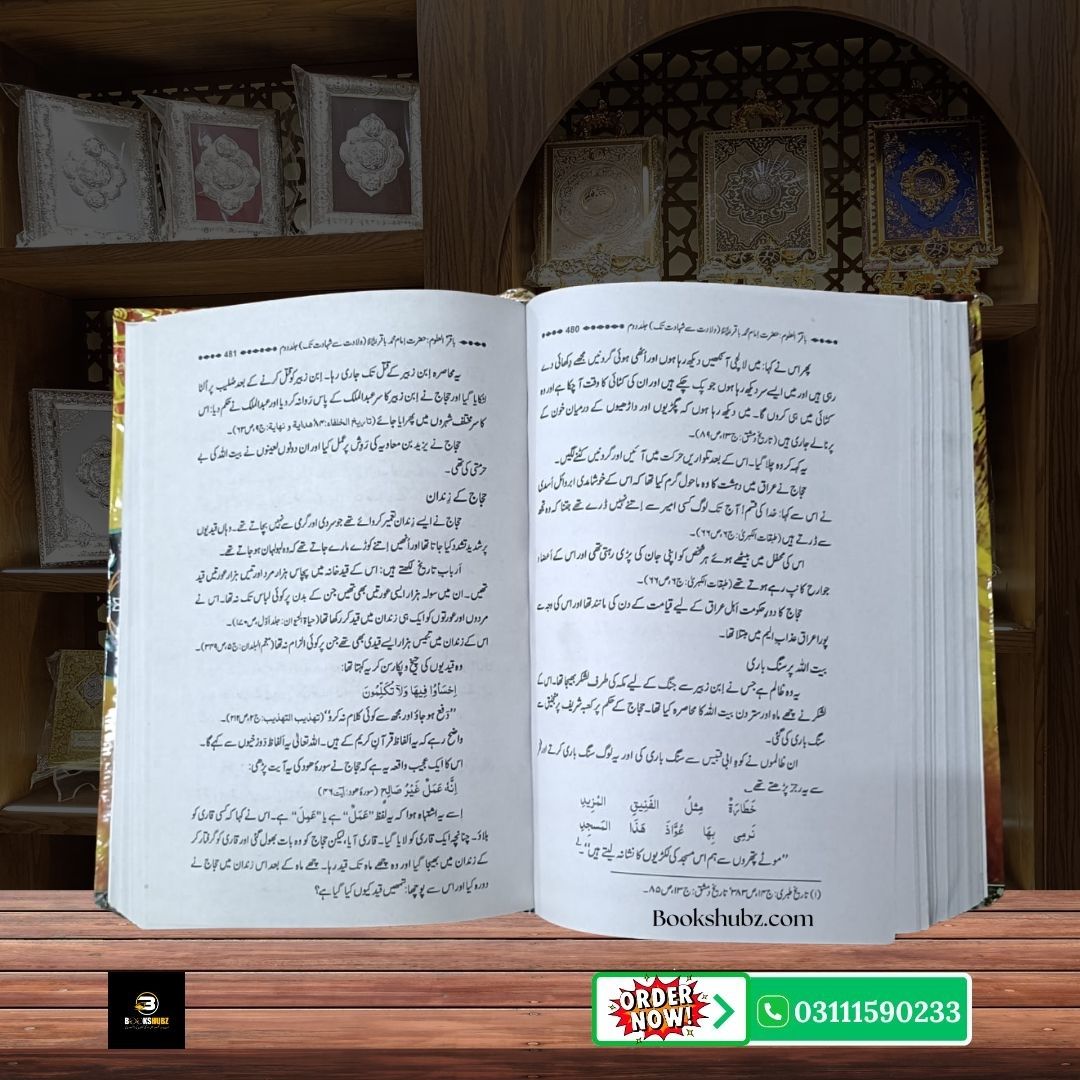 باقرؑ العلوم: حضرت امام محمد باقرؑ (ولادت سے شہادت تک) جلد دوم 480
پھر اس نے کہا: میں لالچی آنکھیں دیکھ رہا ہوں اور اٹھی ہوئی گردنیں مجھے دکھائی دے
رہی ہیں اور میں ایسے سر دیکھ رہا ہوں جو پک چکے ہیں اور ان کی کٹائی کا وقت آ چکا ہے اور وہ
کٹائی میں ہی کروں گا۔ میں دیکھ رہا ہوں کہ پگڑیوں اور داڑھیوں کے درمیان خون کے
پرنالے جاری ہیں (تاریخ دمشق: ج ۱۳، ص ۸۹)۔
یہ کہہ کر وہ چلا گیا۔ اس کے بعد تلواریں حرکت میں آئیں اور گردنیں کٹنے لگیں۔
حجاج نے عراق میں دہشت کا وہ ماحول گرم کیا تھا کہ اس کے خوشامدی ابو وائل اسدی
نے اس سے کہا: خدا کی قسم! آج تک لوگ کسی امیر سے اتنے نہیں ڈرے تھے جتنا کہ وہ تجھ
سے ڈرتے ہیں (طبقات الکبریٰ: ج ۶، ص ۶۶)۔
اس کی محفل میں بیٹھے ہوئے ہر شخص کو اپنی جان کی پڑی رہتی تھی اور اس کے اعضاء
جوارح کانپ رہے ہوتے تھے (طبقات الکبریٰ: ج ۶، ص ۶۶)۔
حجاج کا دورِ حکومت اہل عراق کے لیے قیامت کے دن کی مانند تھا اور اس کی وجہ سے
پورا عراق عذاب الیم میں مبتلا تھا۔
بیت اللہ پر سنگ باری
یہ وہ ظالم ہے جس نے ابن زبیر سے جنگ کے لیے مکہ کی طرف لشکر بھیجا تھا۔ اس کے
لشکر نے چھے ماہ اور ستر دن بیت اللہ کا محاصرہ کیا تھا۔ حجاج کے حکم پر کعبہ شریف پر منجنیق سے
سنگ باری کی گئی۔
ان ظالموں نے کوہ ابی قبیس سے سنگ باری کی اور یہ لوگ سنگ باری کرتے اور
سے یہ رجز پڑھتے تھے۔
خَطَّارَةٌ مِثْلُ الفَنِيقِ المُزبِدِ
نَرمِی بِهَا عُوَّاذَ هٰذَا المَسجِدِ
”موٹے پتھروں سے ہم اس مسجد کی لکڑیوں کا نشانہ لیتے ہیں“۔
(۱) تاریخ طبری: ج ۱۳، ص ۳۸۳؛ تاریخ دمشق: ج ۱۳، ص ۸۵۔
باقرؑ العلوم: حضرت امام محمد باقرؑ (ولادت سے شہادت تک) جلد دوم 481
یہ محاصرہ ابن زبیر کے قتل تک جاری رہا۔ ابن زبیر کو قتل کرنے کے بعد صلیب پر اُلٹا
لٹکایا گیا اور حجاج نے ابن زبیر کا سر عبدالملک کے پاس روانہ کر دیا اور عبدالملک نے حکم دیا: اس
کا سر مختلف شہروں میں پھرایا جائے (تاریخ الخلفاء: ۸۴؛ ھدایة و نھایة: ج ۹، ص ۶۳)۔
حجاج نے یزید بن معاویہ کی روش پر عمل کیا اور ان دونوں لعینوں نے بیت اللہ کی بے
حرمتی کی تھی۔
حجاج کے زندان
حجاج نے ایسے زندان تعمیر کروائے تھے جو سردی اور گرمی سے نہیں بچاتے تھے۔ وہاں قیدیوں
پر شدید تشدد کیا جاتا تھا اور انھیں اتنے کوڑے مارے جاتے تھے کہ وہ لہولہان ہو جاتے تھے۔
اَرباب تاریخ لکھتے ہیں: اس کے قید خانہ میں پچاس ہزار مرد اور تیس ہزار عورتیں قید
تھیں۔ ان میں سولہ ہزار ایسی عورتیں بھی تھیں جن کے بدن پر کوئی لباس تک نہ تھا۔ اس نے
مردوں اور عورتوں کو ایک ہی زندان میں قید کر رکھا تھا (حیاۃ الحیوان: جلد اوّل، ص ۱۷۰)۔
اس کے زندان میں تیتیس ہزار ایسے قیدی بھی تھے جن پر کوئی الزام نہ تھا (معجم البلدان: ج ۵، ص ۳۴۹)۔
وہ قیدیوں کی چیخ و پکار سن کر یہ کہتا تھا:
اِخسَأُوا فِیهَا وَلَا تُکَلِّمُونَ
”دفع ہو جاؤ اور مجھ سے کوئی کلام نہ کرو“ (تھذیب التھذیب: ج ۲، ص ۲۱۲)۔
واضح رہے کہ یہ الفاظ قرآن کریم کے ہیں۔ اللہ تعالیٰ یہ الفاظ دوزخیوں سے کہے گا۔
اس کا ایک عجیب واقعہ یہ ہے کہ حجاج نے سورۂ ھود کی یہ آیت پڑھی:
اِنَّهُ عَمَلٌ غَیْرُ صَالِحٍ (سورۂ ھود: آیت ۴۶)
اسے یہ اشتباہ ہوا کہ یہ لفظ ”عَمَلٌ“ ہے یا ”عَمِلَ“ ہے۔ اس نے کہا کہ کسی قاری کو
بلاؤ۔ چنانچہ ایک قاری کو لایا گیا۔ قاری آیا، لیکن حجاج کو وہ بات بھول گئی اور قاری کو گرفتار کر
کے زندان میں بھیجا گیا اور وہ چھے ماہ تک قید رہا۔ چھے ماہ کے بعد اس زندان میں حجاج نے
دورہ کیا اور اس سے پوچھا: تمھیں قید کیوں کیا گیا ہے؟
Bookshubz.com
BOOKSHUBZ
ORDER NOW!
03111590233